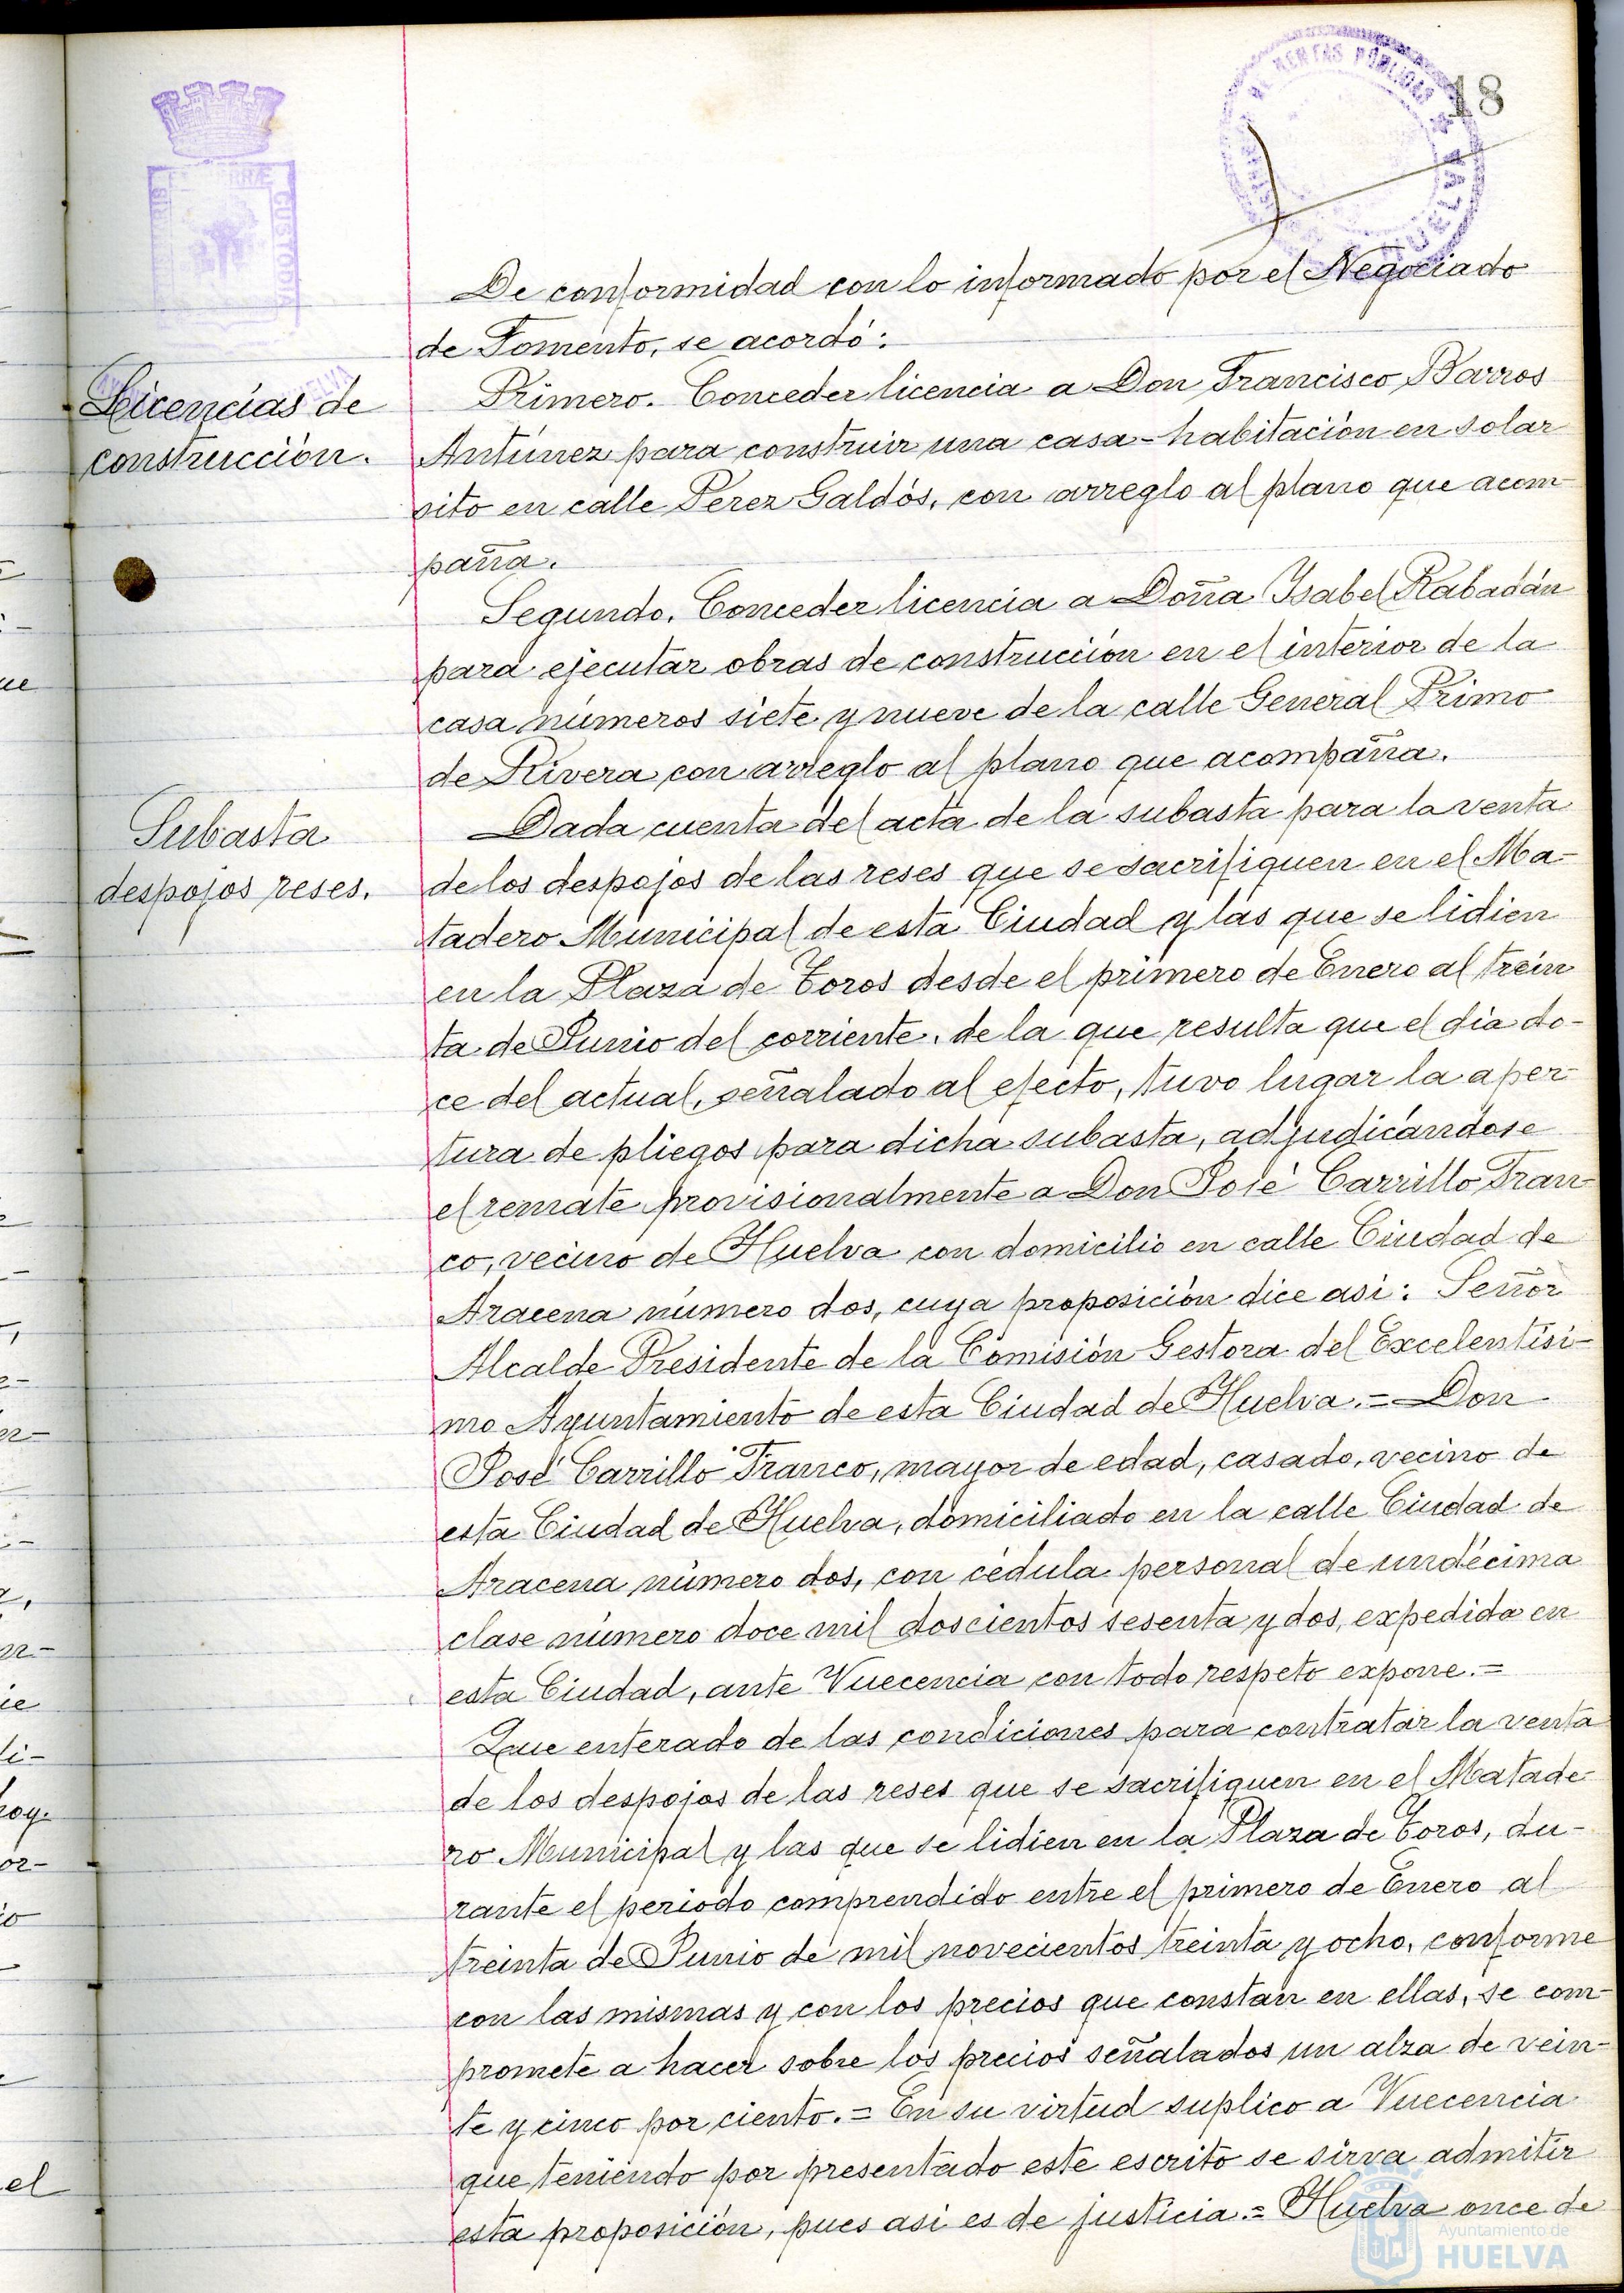 18
De conformidad con lo informado por el Negociado
de Fomento, se acordó:
Licencias de
construcción.
Primero. Conceder licencia a Don Francisco Barros
Antúnez para construir una casa-habitación en solar
sito en calle Perez Galdós, con arreglo al plano que acom-
paña.
Segundo. Conceder licencia a Doña Ysabel Rabadán
para ejecutar obras de construcción en el interior de la
casa números siete y nueve de la calle General Primo
de Rivera con arreglo al plano que acompaña.
Subasta
despojos reses.
Dada cuenta del acta de la subasta para la venta
de los despojos de las reses que se sacrifiquen en el Ma-
tadero Municipal de esta Ciudad y las que se lidien
en la Plaza de Toros desde el primero de Enero al trein
ta de Junio del corriente, de la que resulta que el dia do-
ce del actual, señalado al efecto, tuvo lugar la aper-
tura de pliegos para dicha subasta, adjudicándose
el remate provisionalmente a Don José Carrillo Fran-
co, vecino de Huelva con domicilio en calle Ciudad de
Aracena número dos, cuya proposición dice asi: Señor
Alcalde Presidente de la Comisión Gestora del Excelentísi-
mo Ayuntamiento de esta Ciudad de Huelva.= Don
José Carrillo Franco, mayor de edad, casado, vecino de
esta Ciudad de Huelva, domiciliado en la calle Ciudad de
Aracena número dos, con cédula personal de undécima
clase número doce mil doscientos sesenta y dos, expedida en
esta Ciudad, ante Vuecencia con todo respeto expone.=
Que enterado de las condiciones para contratar la venta
de los despojos de las reses que se sacrifiquen en el Matade-
ro Municipal y las que se lidien en la Plaza de Toros, du-
rante el periodo comprendido entre el primero de Enero al
treinta de Junio de mil novecientos treinta y ocho, conforme
con las mismas y con los precios que constan en ellas, se com-
promete a hacer sobre los precios señalados un alza de vein-
te y cinco por ciento.= En su virtud suplico a Vuecencia
que teniendo por presentado este escrito se sirva admitir
esta proposición, pues asi es de justicia.= Huelva once de
Ayuntamiento de
HUELVA